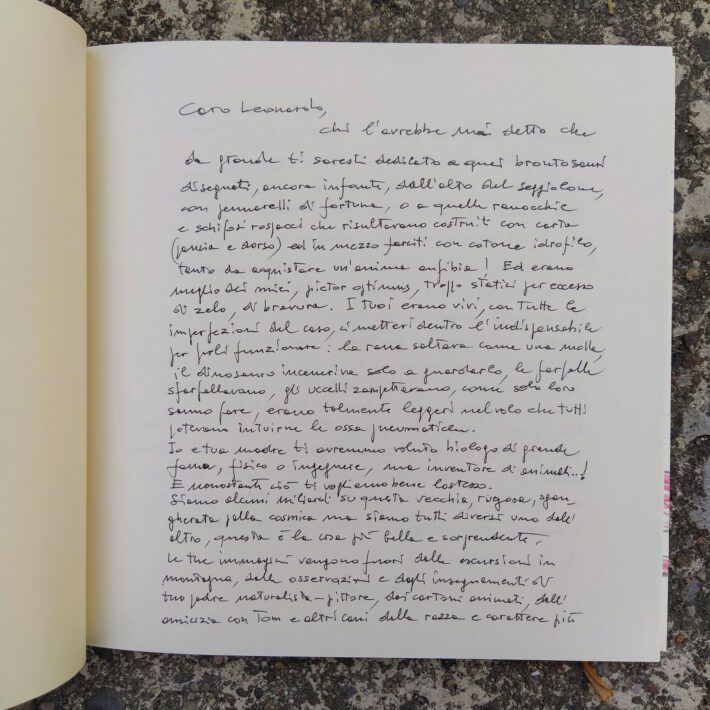 Caro Leonardo,
chi l'avrebbe mai detto che
da grande ti saresti dedicato a quei brontosauri
disegnati, ancora infante, dall'alto del seggiolone,
con pennarelli di fortuna, o a quelle ranocchie
e schifosi rospacci che risultavano costruiti con carta
(pancia e dorso) ed in mezzo farciti con cotone idrofilo,
tanto da acquistare un'anima anfibia! Ed erano
meglio dei miei, pictor optimus, troppo statici per eccesso
di zelo, di bravura. I tuoi erano vivi, con tutte le
imperfezioni del caso, ci mettevi dentro l'indispensabile
per farli funzionare: la rana saltava come una molla,
il dinosauro inceneriva solo a guardarlo, le farfalle
sfarfallavano, gli uccelli zampettavano, come solo loro
sanno fare, erano talmente leggeri nel volo che tutti
potevano intuirne le ossa pneumatiche.
Io e tua madre ti avremmo voluto biologo di grande
fama, fisico o ingegnere, ma inventore di animali...!
E nonostante ciò ti vogliamo bene lo stesso.
Siamo alcuni miliardi su questa vecchia, rugosa, sgan
gherata palla cosmica ma siamo tutti diversi uno dall'
altro, questa è la cosa più bella e sorprendente.
Le tue immagini vengono fuori dalle escursioni in
montagna, dalle osservazioni e dagli insegnamenti di
tuo padre naturalista-pittore, dai cartoni animati, dall'
amicizia con Tom e altri cani dalla razza e carattere più